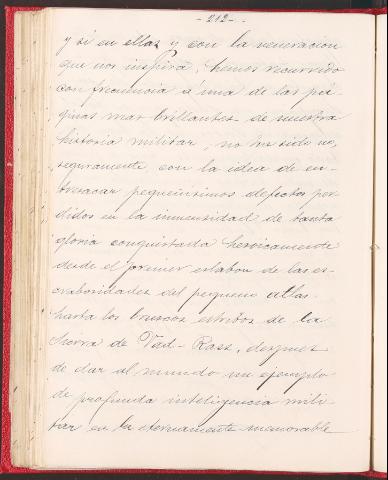 - 212 -
y si en ellas y con la veneracion
que nos inspira, hemos recurrido
con frecuencia á una de las pá-
ginas mas brillantes de nuestra
historia militar, no ha sido no,
seguramente, con la idea de en-
tresacar pequeñisimos defectos per
didos en la inmensidad de tanta
gloria conquistada heroicamente
desde el primer eslabon de las es-
cabrosidades del pequeño atlas
hasta los bruscos estribos de la
Sierra de Vad-Rass, despues
de dar al mundo un ejemplo
de profunda inteligencia mili
tar en la eternamente memorable